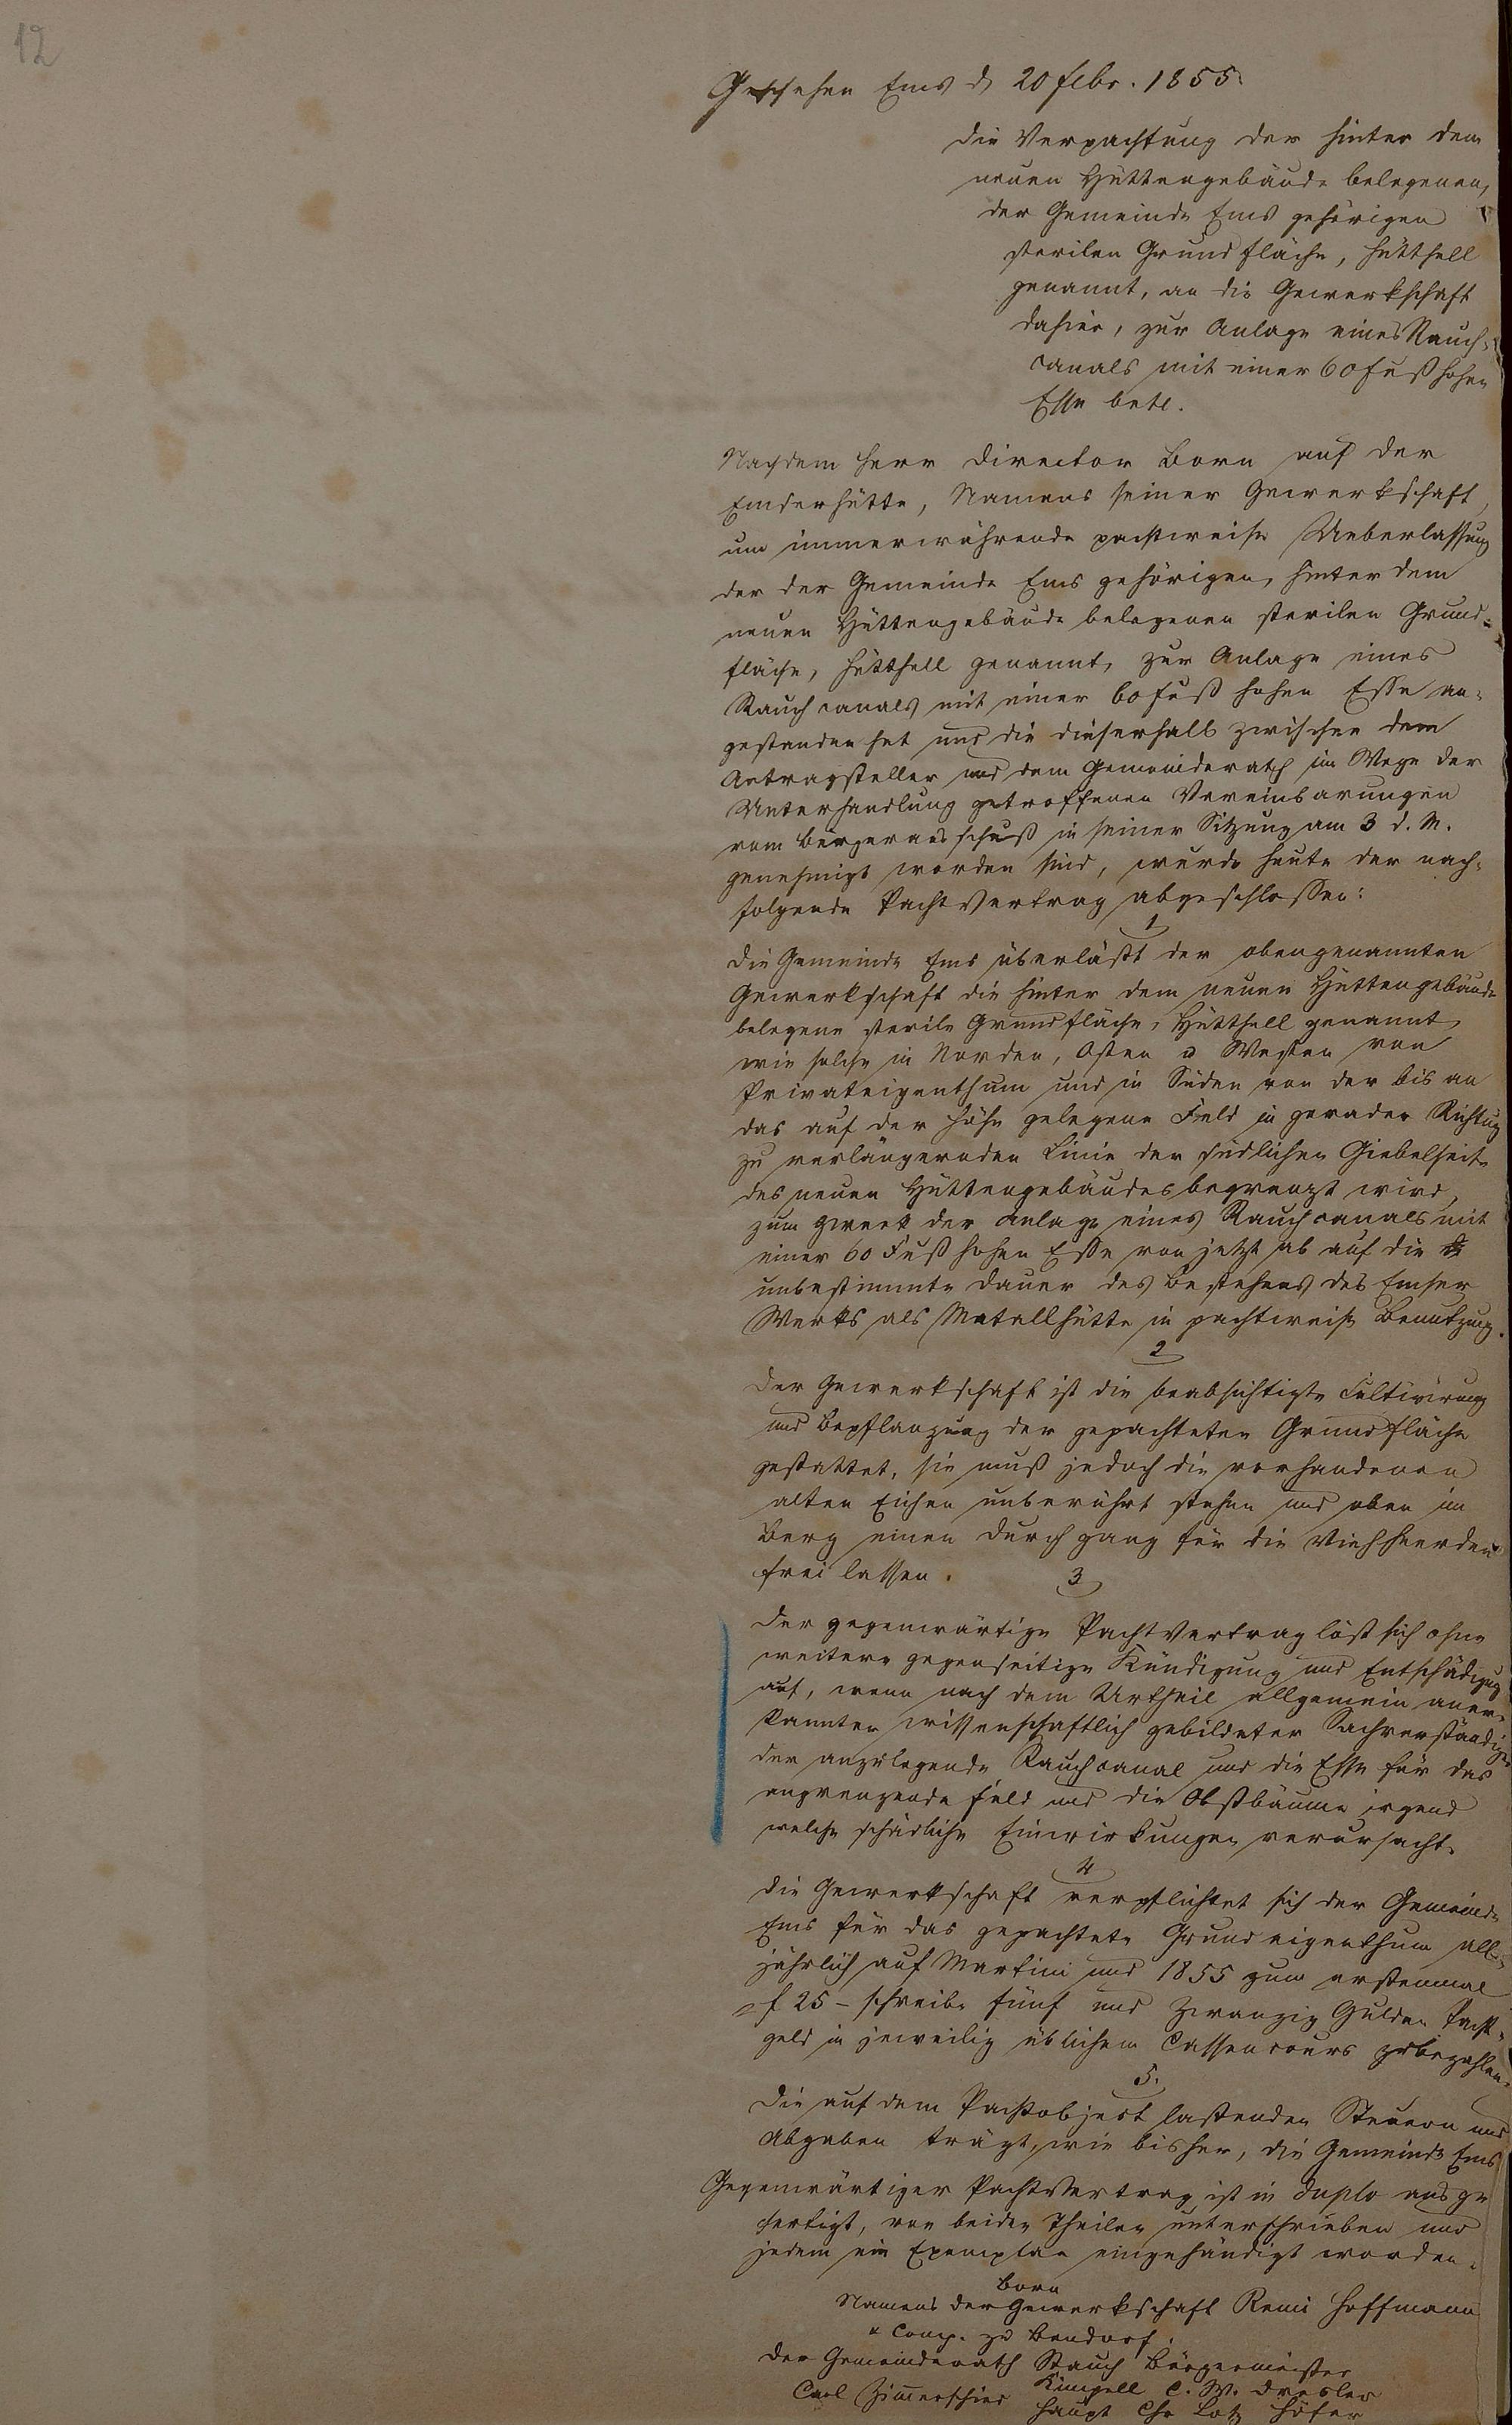 12
Geschehen Ems d 20 Febr. 1855
Die Verpachtung der hinter dem
neuen Hüttengebäude belegenen,
der Gemeinde Ems gehörigen
sterilen Grundfläche, Hütthell
genannt, an die Gewerkschaft
dahier, zur Anlage eines Rauch-
canals mit einer 60 Fuß hohen
Esse betr.
Nachdem Herr Director Born auf der
Emserhütte, Namens seiner Gewerkschaft,
um immerwährende pachtweise Ueberlassung
der der Gemeinde Ems gehörigen, hinter dem
neuen Hüttengebäude belegenen sterilen Grund-
fläche, Hütthell genannt, zur Anlage eines
Rauchcanals mit einer 60 Fuß hohen Esse an-
gestanden hat und die dieserhalb zwischen dem
Antragsteller und dem Gemeinderath im Wege der
Unterhandlung getroffenen Vereinbarungen
vom Bürgerausschuß in seiner Sitzung am 3 d. M.
genehmigt worden sind, wurde heute der nach-
folgende Pachtvertrag abgeschlossen:
1
Die Gemeinde Ems überläßt der obengenannten
Gewerkschaft die hinter dem neuen Hüttengebäude
belegene sterile Grundfläche, Hütthell genannt,
wie solche in Norden, Osten u Westen von
Privateigenthum und in Süden von der bis an
das auf der Höhe gelegene Feld in gerader Richtung
zu verlängernden Linie der südlichen Giebelseite
des neuen Hüttengebäudes begrenzt wird,
zum Zweck der Anlage eines Rauchcanals mit
einer 60 Fuß hohen Esse von jetzt ab auf die
unbestimmte Dauer des Bestehens des Emser
Werks als Metallhütte in pachtweise Benutzung.
2
Der Gewerkschaft ist die beabsichtigte Cultivirung
und Bepflanzung der gepachteten Grundfläche
gestattet, sie muß jedoch die vorhandenen
alten Eichen unberührt stehen und oben im
Berg einen Durchgang für die Viehheerden
frei lassen.
3
Der gegenwärtige Pachtvertrag löst sich ohne
weitere gegenseitige Kündigung und Entschädigung
auf, wenn nach dem Urtheil allgemein aner-
kannter wissenschaftlich gebildeter Sachverständigen
der anzulegende Rauchcanal und die Esse für das
angrenzende Feld und die Obstbäume irgend
welche schädliche Einwirkungen verursacht.
4
Die Gewerkschaft verpflichtet sich der Gemeinde
Ems für das gepachtete Grundeigenthum all-
jährlich auf Martini und 1855 zum erstenmal
f 25 – schreibe fünf und zwanzig Gulden Pacht-
geld in jeweilig üblichem Cassencours zu bezahlen.
5.
Die auf dem Pachtobject lastenden Steuern und
Abgaben trägt, wie bisher, die Gemeinde Ems
Gegenwärtiger Pachtvertrag ist in duplo ausge
fertigt, von beiden Theilen unterschrieben und
jedem ein Exemplar eingehändigt worden.
Born
Namens der Gewerkschaft Remi Hoffmann
u Comp. zu Bendorf.
Der Gemeinderath Stauch Bürgermeister
Carl Zimmerschied Kimpell C. W. Dresler
Haupt Chr Lotz Höfer